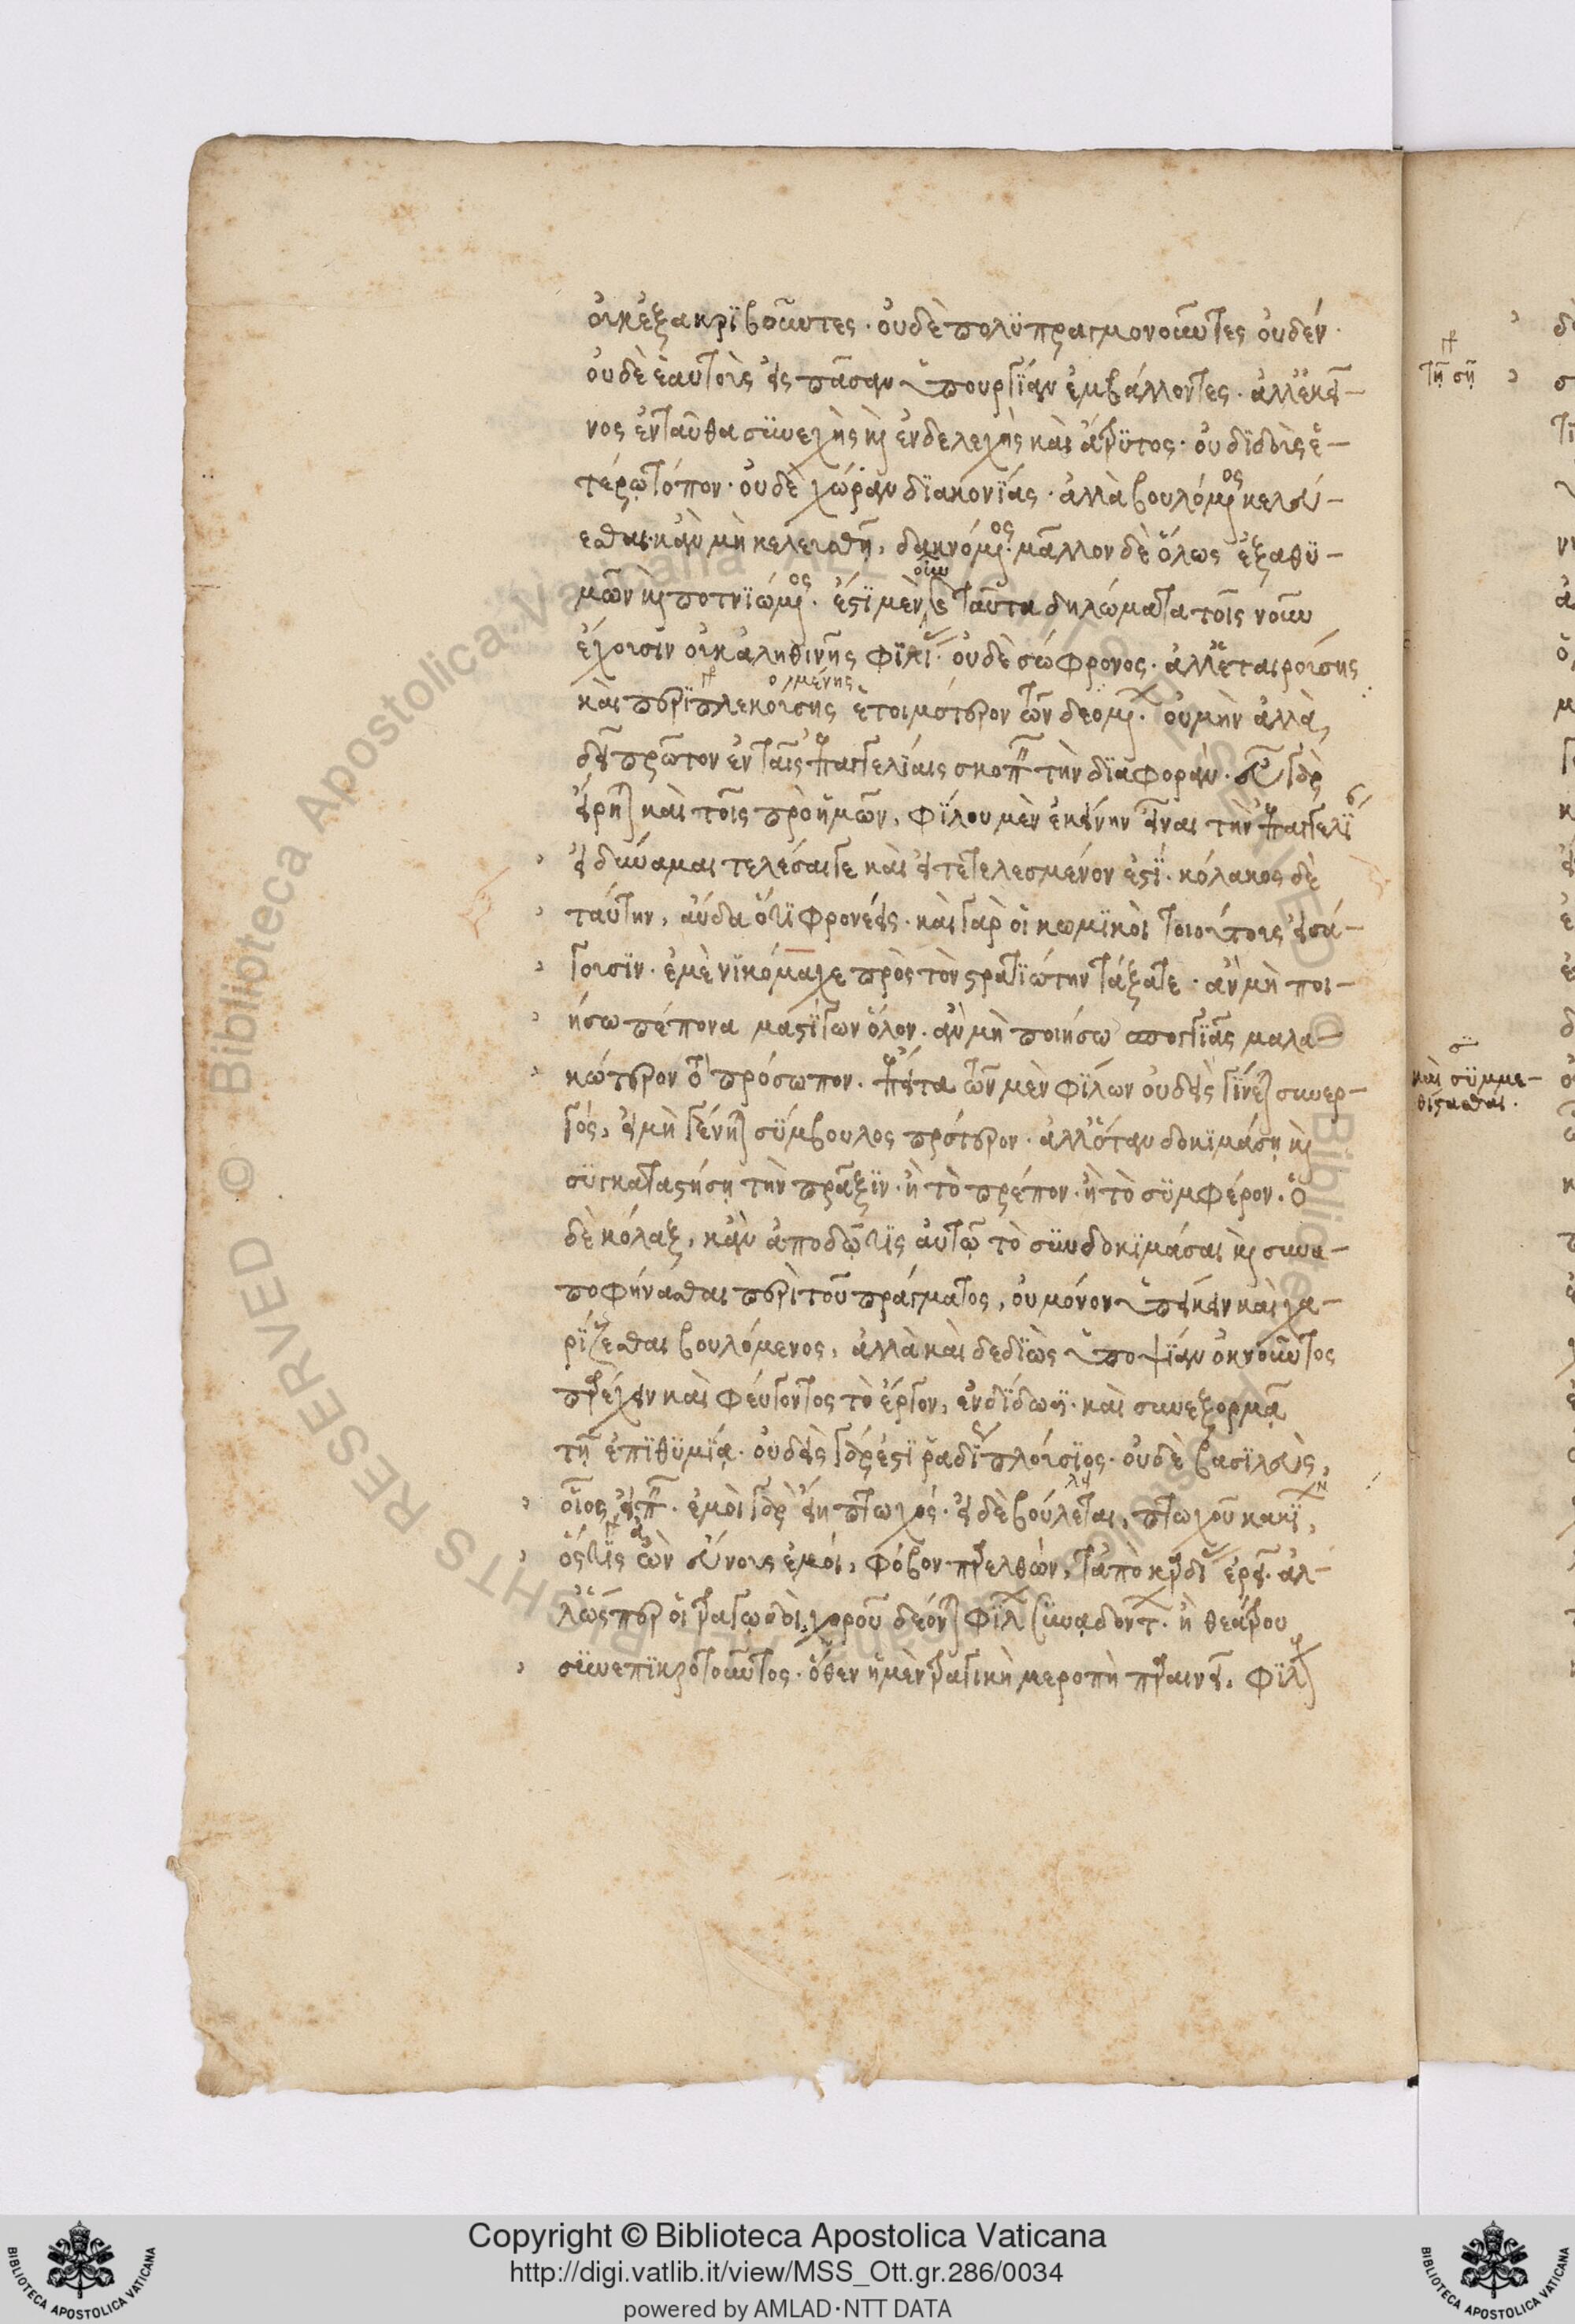 οὐκ ἐξακριβοῦντες· οὐδὲ πολϋπραγμονοῦντες οὐδέν·
οὐδὲ ἑαυτοὺς εἰς πᾶσαν ὑπουργΐαν ἐμβάλλοντες· ἀλλ' ἐκεῖ-
νος ἐνταῦθα συνεχὴς καὶ ἐνδελεχὴς καὶ ἄτρϋτος· οὐ διδοὺς ἑ-
τέρῳ τόπον· οὐδὲ χώραν διακονΐας· ἀλλὰ βουλόμενος κελεύ-
εσθαι· κἂν μὴ κελευσθῇ, δακνόμενος· μᾶλλον δὲ ὅλως ἐξαθϋ-
μῶν καὶ ποτνιώμενος· ἔστι μὲν οὖν ταῦτα δηλώματα τοῖς νοῦν
ἔχουσιν οὐκ ἀληθινῆς φιλίας· οὐδὲ σώφρονος· ἀλλ' ἑταιρούσης
καὶ περιπλεκούσης ο,μένης ἑτοιμότερον τῶν δεομένων· οὐ μὴν ἀλλὰ,
δεῖ πρῶτον ἐν ταῖς ἐπαγγελΐαις σκοπεῖν τὴν διαφοράν· εὖ γὰρ
εἴρηται καὶ τοῖς πρὸ ἡμῶν, φΐλου μὲν ἐκείνην εἶναι τὴν ἐπαγγελΐαν
εἰ δύναμαι τελέσαι γε καὶ εἰ τετελεσμένον ἐστΐ· κόλακος δὲ
ταύτην, αὔδα ὅτι φρονέεις· καὶ γὰρ οἱ κωμϊκοὶ τοιούτους εἰσά-
γουσιν· ἐμὲ νικόμαχε πρὸς τὸν στρατιώτην τάξατε· ἂν μὴ ποι-
ήσω πέπονα μαστιγῶν ὅλον· ἂν μὴ ποιήσω σπογγιᾶς μαλα-
κώτερον τὸ πρόσωπον· ἔπειτα τῶν μὲν φΐλων οὐδεὶς γΐνεται συνερ-
γός, εἰ μὴ γένηται σύμβουλος πρότερον· ἀλλ' ὅταν δοκιμάσῃ καὶ
συγκαταστήσῃ τὴν πρᾶξιν· ἢ τὸ πρέπον· ἢ τὸ συμφέρον· ὁ
δὲ κόλαξ, κἂν ἀποδῷ τις αὐτῷ τὸ συνδοκιμάσαι καὶ συνα-
ποφήνασθαι περὶ τοῦ πράγματος, οὐ μόνον ὑπείκειν καὶ χα-
ρΐζεσθαι βουλόμενος, ἀλλὰ καὶ δεδιὼς ὑποψΐαν ὀκνοῦντος
παρέχειν καὶ φεύγοντος τὸ ἔργον, ἐνδΐδωσι· καὶ συνεξορμᾷ
τῇ ἐπιθϋμΐᾳ· οὐδεὶς γὰρ ἐστι ῥᾳδΐως πλούσιος· οὐδὲ βασιλεὺς,
οἷος εἰπεῖν· ἐμοὶ γὰρ εἴη πτωχός· εἰ δὲ βούλεται, πτωχοῦ κακΐων,
ὅστις ὢν εὔνους ἐμοὶ, φόβον παρελθὼν, τἀπὸ καρδΐας ἐρεῖ· ἀλ-
λ' ὥσπερ οἱ τραγῳδοὶ, χοροῦ δέονται φΐλων συνᾳδόντων· ἢ θεάτρου
συνεπικροτοῦντος· ὅθεν ἡ μὲν τραγικὴ μερόπη παραινεῖ, φΐλ
τῇ σῇ
καὶ σϋμμε-
θίστασθαι.
Copyright © Biblioteca Apostolica Vaticana
http://digi.vatlib.it/view/MSS_Ott.gr.286/0034
powered by AMLAD·NTT DATA